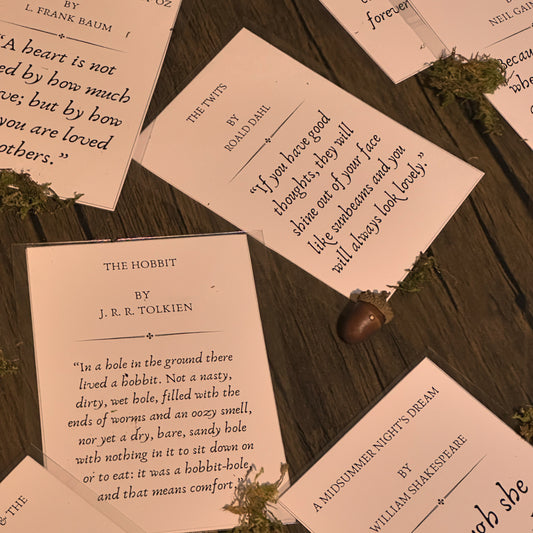 OZ
BY
L. FRANK BAUM
“A heart is not
ed by how much
ve; but by how
you are loved
others.”
THE TWITS
BY
ROALD DAHL
“If you have good
thoughts, they will
shine out of your face
like sunbeams and you
will always look lovely.”
forever
BY
NEIL GAI
Becau
whe
THE HOBBIT
BY
J. R. R. TOLKIEN
“In a hole in the ground there
lived a hobbit. Not a nasty,
dirty, wet hole, filled with the
ends of worms and an oozy smell,
nor yet a dry, bare, sandy hole
with nothing in it to sit down on
or to eat: it was a hobbit-hole,
and that means comfort.”
A MIDSUMMER NIGHT'S DREAM
BY
WILLIAM SHAKESPEARE
gh she
& THE